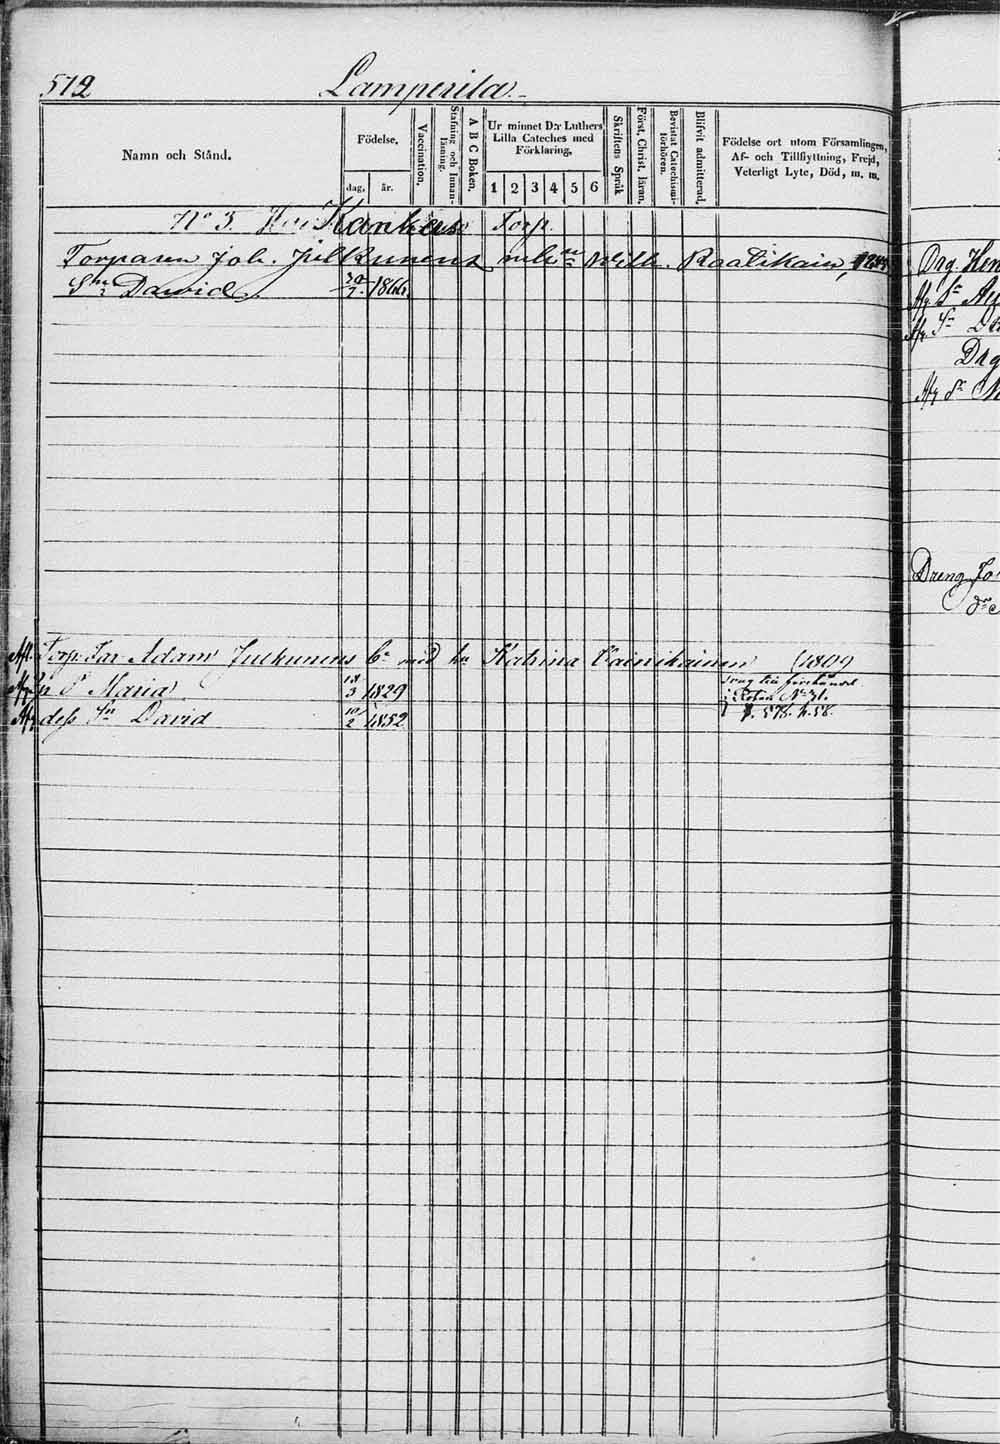 572 Lamperila.
Namn och Stånd.
Födelse.
dag. år.
Vaccination.
Stafning och Innanläsning.
A B C Boken.
Ur minnet D:r Luthers Lilla Cateches med Förklaring.
1 2 3 4 5 6
Skriftens Språk
Först. Christ. läran.
Bevistat Catechismiförhören.
Blifvit admitterad.
Födelse ort utom Församlingen, Af- och Tillflyttning, Frejd, Veterligt Lyte, Död, m. m.
No 3. Torp.
Torparen Joh. Julkunens Raatikain,
Sn David 30/7 1864.
Afl. Torp. Adam Julkunens med Katrina Vainikainen (1809
Afg. Maria 18/3 1829
Rotan No 31.
Afg. dess Sn David 10/2 1852 p. 578.
Drg. Hen
Afg. Sn
Afg. Sn
Drg
Afg. Sn
Dreng Jo